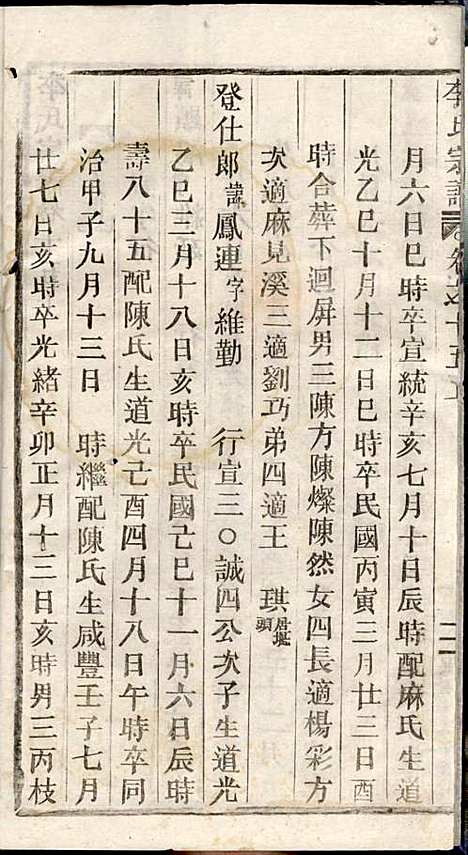 李氏宗譜 卷之十五上 二
月六日巳時卒宣統辛亥七月十日辰時配麻氏生道
光乙巳十月十二日巳時卒民國丙寅三月廿三日酉
時合葬下迴屏男三陳方陳燦陳然女四長適楊彩方
次適麻見溪三適劉巧弟四適王琪居堰頭
登仕郎諱鳳連字維勤 行宣三〇誠四公次子生道光
乙巳三月十八日亥時卒民國己巳十一月六日辰時
壽八十五配陳氏生道光己酉四月十八日午時卒同
治甲子九月十三日 時繼配陳氏生咸豐壬子七月
廿七日亥時卒光緒辛卯正月十三日亥時男三丙枝